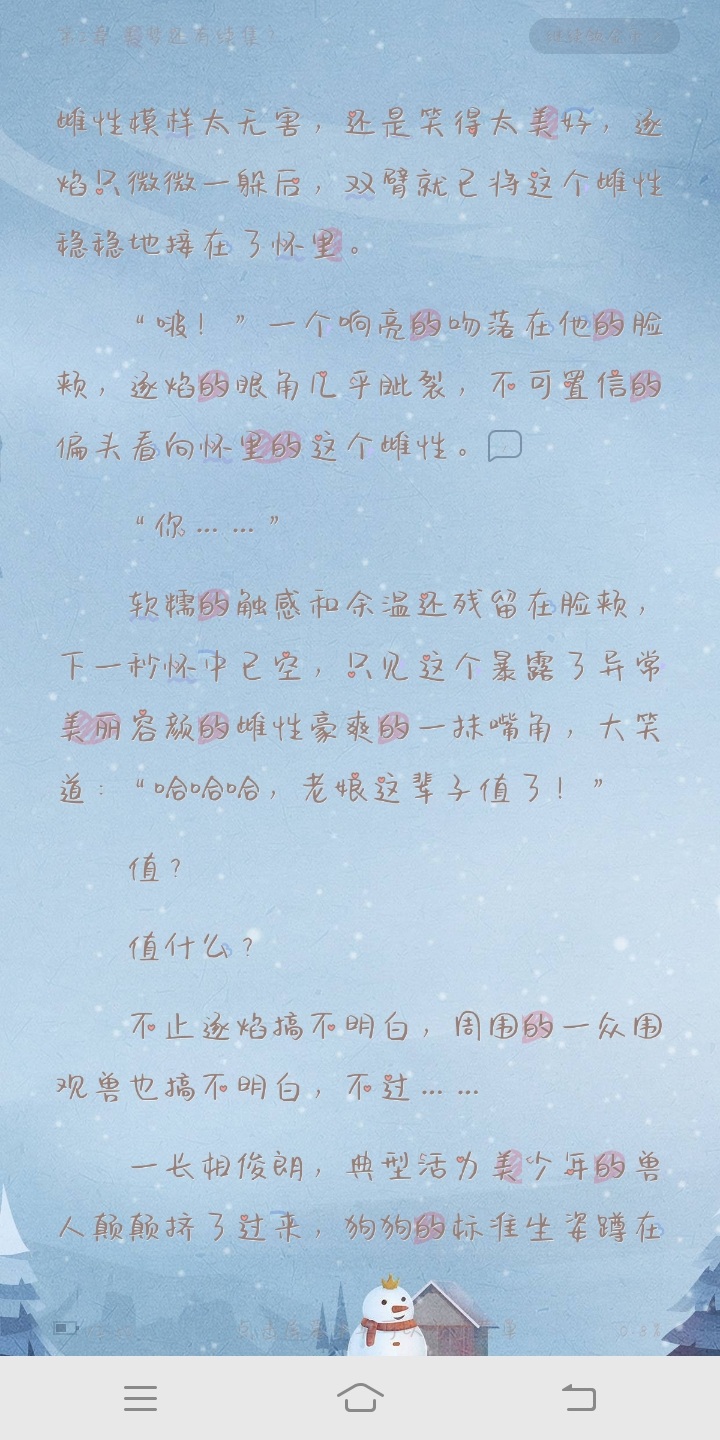 雌性模样太无害，还是笑得太美好，逐
焰只微微一躲后，双臂就已将这个雌性
稳稳地接在了怀里。
“啵！”一个响亮的吻落在他的脸
颊，逐焰的眼角几乎眦裂，不可置信的
偏头看向怀里的这个雌性。
“你……”
软糯的触感和余温还残留在脸颊，
下一秒怀中已空，只见这个暴露了异常
美丽容颜的雌性豪爽的一抹嘴角，大笑
道：“哈哈哈，老娘这辈子值了！”
值？
值什么？
不止逐焰搞不明白，周围的一众围
观兽也搞不明白，不过……
一长相俊朗，典型活力美少年的兽
人颠颠挤了过来，狗狗的标准坐姿蹲在